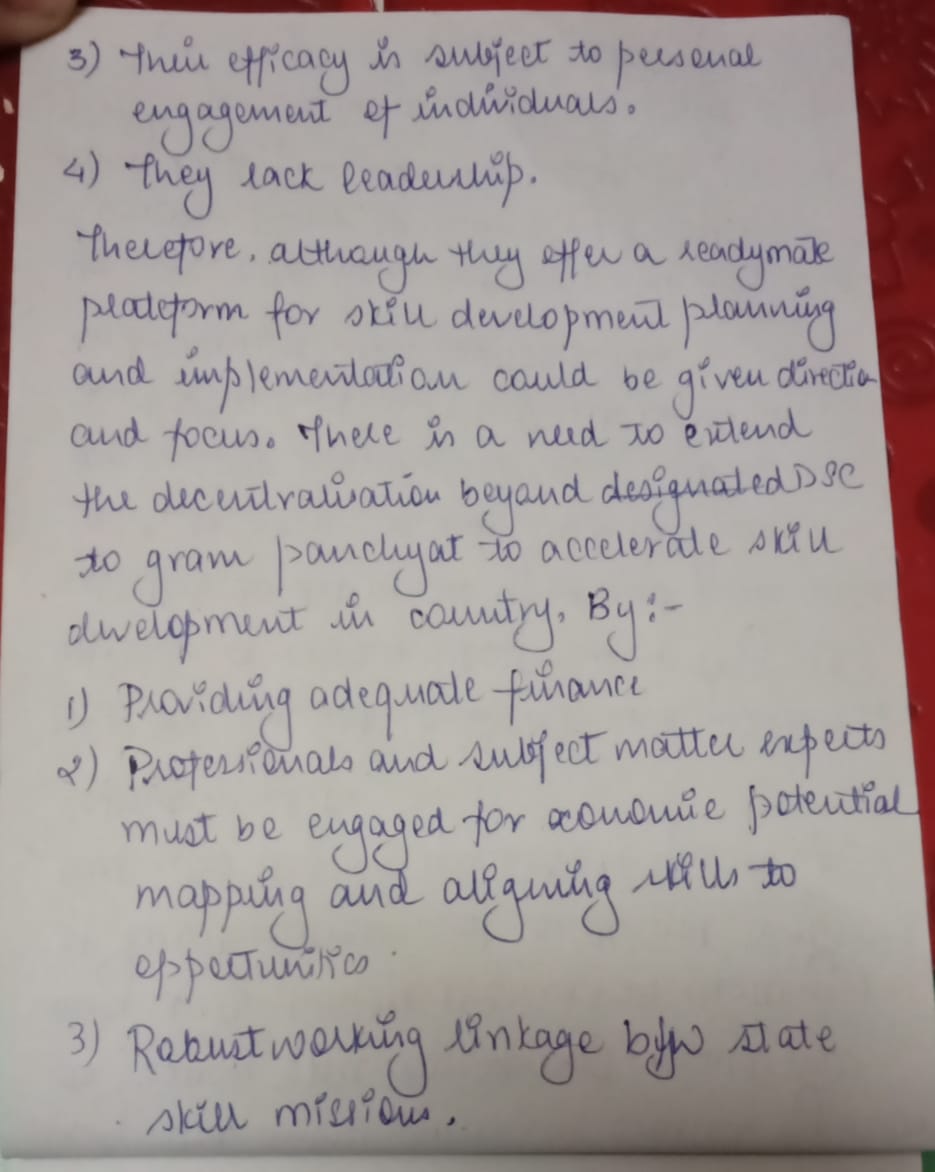 3) Their efficacy is subject to personal
engagement of individuals.
4) They lack leadership.
Therefore, although they offer a readymate
platform for skill development planning
and implementation could be given direction
and focus. There is a need to extend
the decentralisation beyond designated DSC
to gram panchyat to accelerate skill
development in country. By:-
1) Providing adequate finance
2) Professionals and subject matter experts
must be engaged for economic potential
mapping and aligning skills to
opportunities.
3) Robust working linkage b/w state
skill missions.